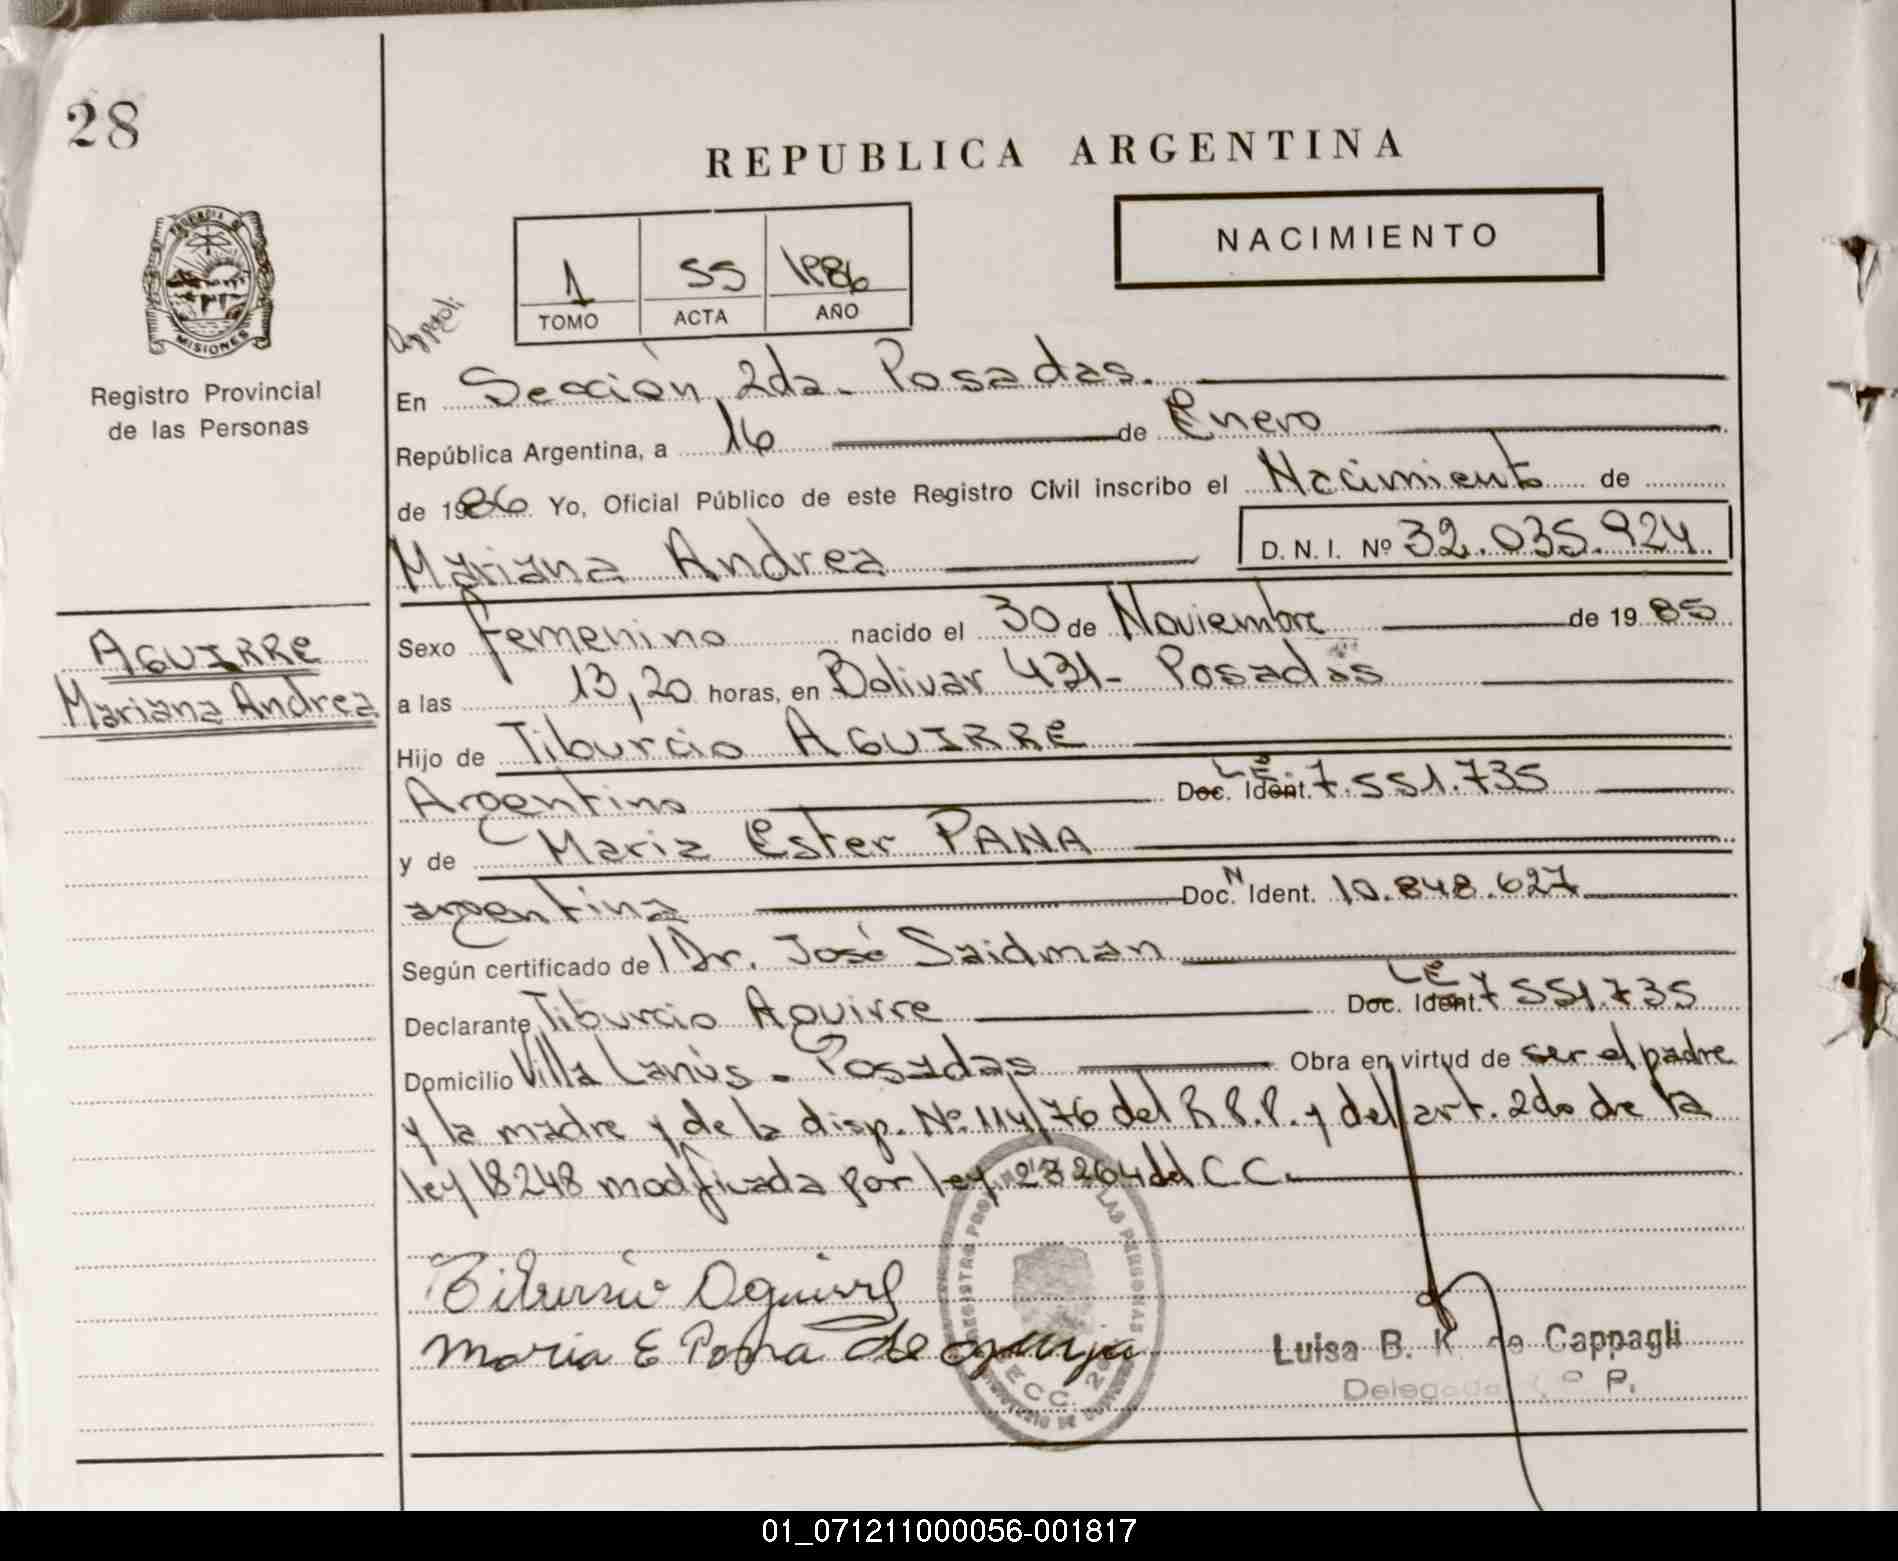 28
REPUBLICA ARGENTINA
NACIMIENTO
PROVINCIA DE
MISIONES
Registro Provincial
de las Personas
1 55 1986
TOMO ACTA AÑO
En Sección 2da - Posadas.
República Argentina, a 16 de Enero
de 1986 Yo, Oficial Público de este Registro Civil inscribo el Nacimiento de
Mariana Andrea D. N. I. Nº 32.035.924
AGUIRRE
Mariana Andrea
Sexo femenino nacido el 30 de Noviembre de 1985
a las 13,20 horas, en Bolivar 431- Posadas
Hijo de Tiburcio AGUIRRE
Argentino LE. Doc. Ident. 7.551.735
y de Maria Ester PANA
argentina Doc. N Ident. 10.848.627
Según certificado del Dr. José Saidman
Declarante Tiburcio Aguirre LE Doc. Ident. 7551.735
Domicilio Villa Lanús - Posadas Obra en virtud de ser el padre
y la madre y de la disp. Nº 114/76 del R.P.P. y del art. 2do de la
ley 18248 modficada por ley 23264 del C.C.
Tibursio Aguirre
Maria E Pana de
REGISTRO PROVINCIAL DE LAS PERSONAS
Luisa B. K. de Cappagli
Delegada R. P.
01_071211000056-001817